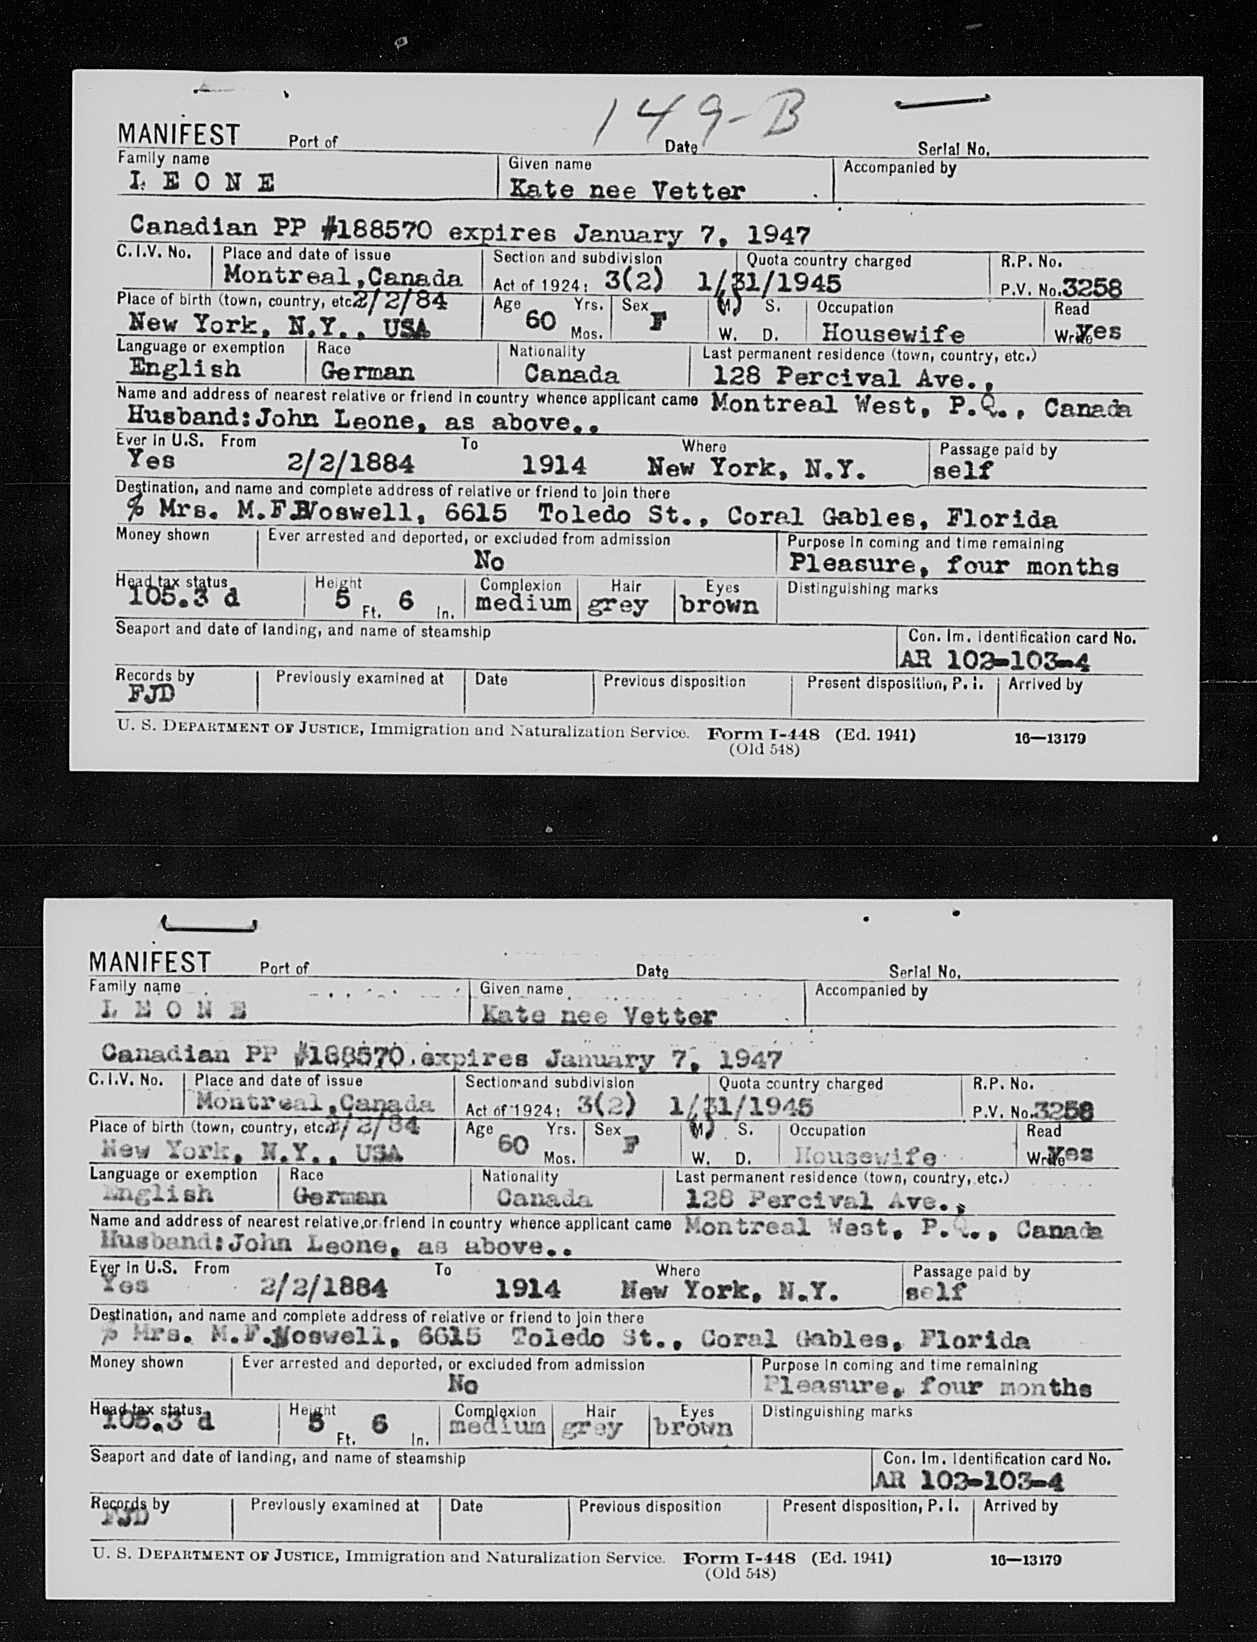 149-B
MANIFEST Port of Date Serial No.
Family name Given name Accompanied by
L E O N E Kate nee Vetter
Canadian PP #188570 expires January 7, 1947
C.I.V. No. Place and date of issue Section and subdivision Quota country charged R.P. No.
Montreal,Canada Act of 1924: 3(2) 1/31/1945 P.V. No. 3258
Place of birth (town, country, etc. 2/2/84 Age Yrs. Sex M. S. Occupation Read
New York, N.Y., USA 60 Mos. F W. D. Housewife Write Yes
Language or exemption Race Nationality Last permanent residence (town, country, etc.)
English German Canada 128 Percival Ave.,
Name and address of nearest relative or friend in country whence applicant came Montreal West, P.Q., Canada
Husband:John Leone, as above..
Ever in U.S. From To Where Passage paid by
Yes 2/2/1884 1914 New York, N.Y. self
Destination, and name and complete address of relative or friend to join there
% Mrs. M.F. Woswell, 6615 Toledo St., Coral Gables, Florida
Money shown Ever arrested and deported, or excluded from admission Purpose in coming and time remaining
No Pleasure, four months
Head tax status Height Complexion Hair Eyes Distinguishing marks
105.3 d 5 Ft. 6 In. medium grey brown
Seaport and date of landing, and name of steamship Con. Im. Identification card No.
AR 102-103-4
Records by Previously examined at Date Previous disposition Present disposition, P. I. Arrived by
FJD
U. S. DEPARTMENT OF JUSTICE, Immigration and Naturalization Service. Form I-448 (Ed. 1941) 16—13179
(Old 548)
MANIFEST Port of Date Serial No.
Family name Given name Accompanied by
L E O N E Kate nee Vetter
Canadian PP #188570 expires January 7, 1947
C.I.V. No. Place and date of issue Section and subdivision Quota country charged R.P. No.
Montreal,Canada Act of 1924: 3(2) 1/31/1945 P.V. No. 3258
Place of birth (town, country, etc. 2/2/84 Age Yrs. Sex M. S. Occupation Read
New York, N.Y., USA 60 Mos. F W. D. Housewife Write Yes
Language or exemption Race Nationality Last permanent residence (town, country, etc.)
English German Canada 128 Percival Ave.,
Name and address of nearest relative or friend in country whence applicant came Montreal West, P.Q., Canada
Husband:John Leone, as above..
Ever in U.S. From To Where Passage paid by
Yes 2/2/1884 1914 New York, N.Y. self
Destination, and name and complete address of relative or friend to join there
% Mrs. M.F. Woswell, 6615 Toledo St., Coral Gables, Florida
Money shown Ever arrested and deported, or excluded from admission Purpose in coming and time remaining
No Pleasure, four months
Head tax status Height Complexion Hair Eyes Distinguishing marks
105.3 d 5 Ft. 6 In. medium grey brown
Seaport and date of landing, and name of steamship Con. Im. Identification card No.
AR 102-103-4
Records by Previously examined at Date Previous disposition Present disposition, P. I. Arrived by
FJD
U. S. DEPARTMENT OF JUSTICE, Immigration and Naturalization Service. Form I-448 (Ed. 1941) 16—13179
(Old 548)